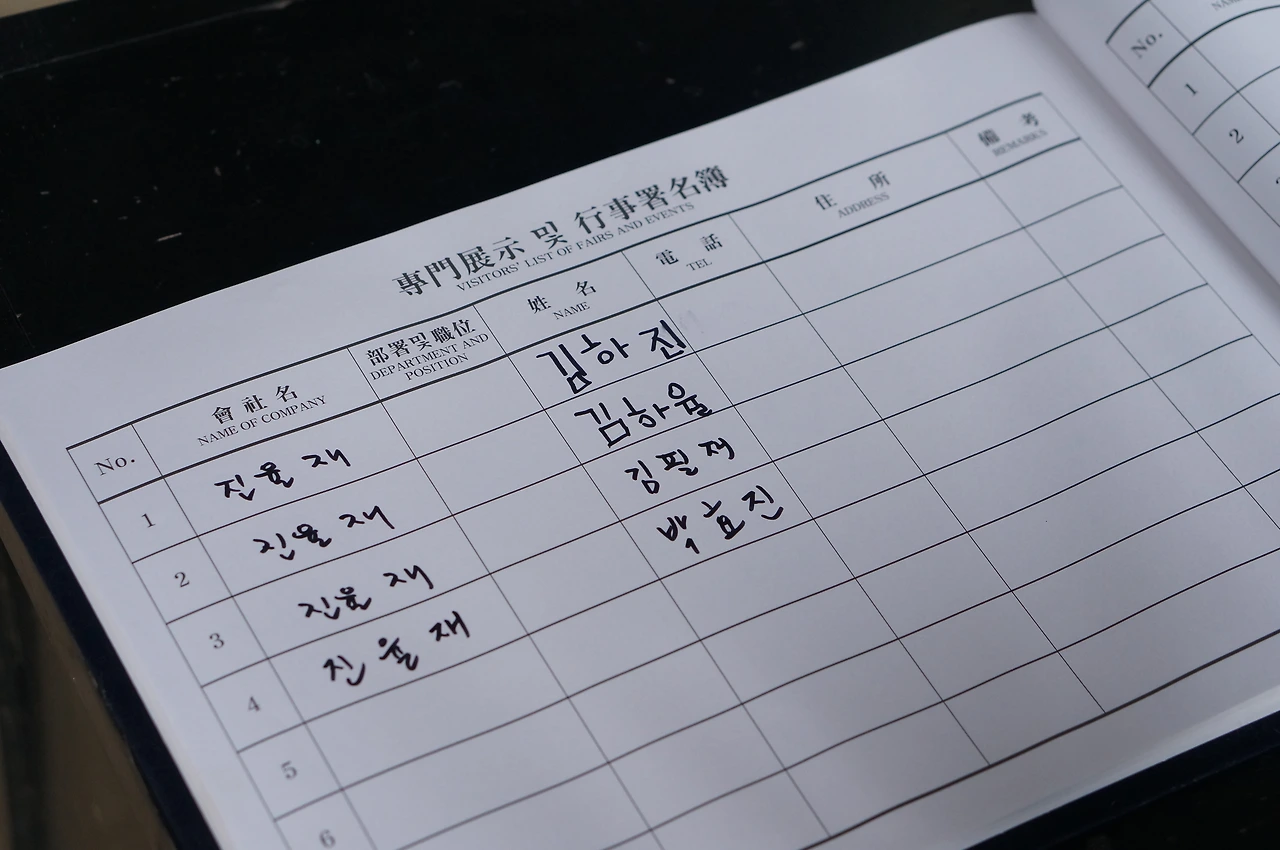 專門展示 및 行事署名簿
VISITORS' LIST OF FAIRS AND EVENTS
No. 會社名 部署및職位 姓名 電話 住所 備考
NAME OF COMPANY DEPARTMENT AND POSITION NAME TEL ADDRESS REMARKS
1 진율재 김하진
2 진율재 김하율
3 진율재 김필재
4 진율재 박효진
5
6
No.
1
2